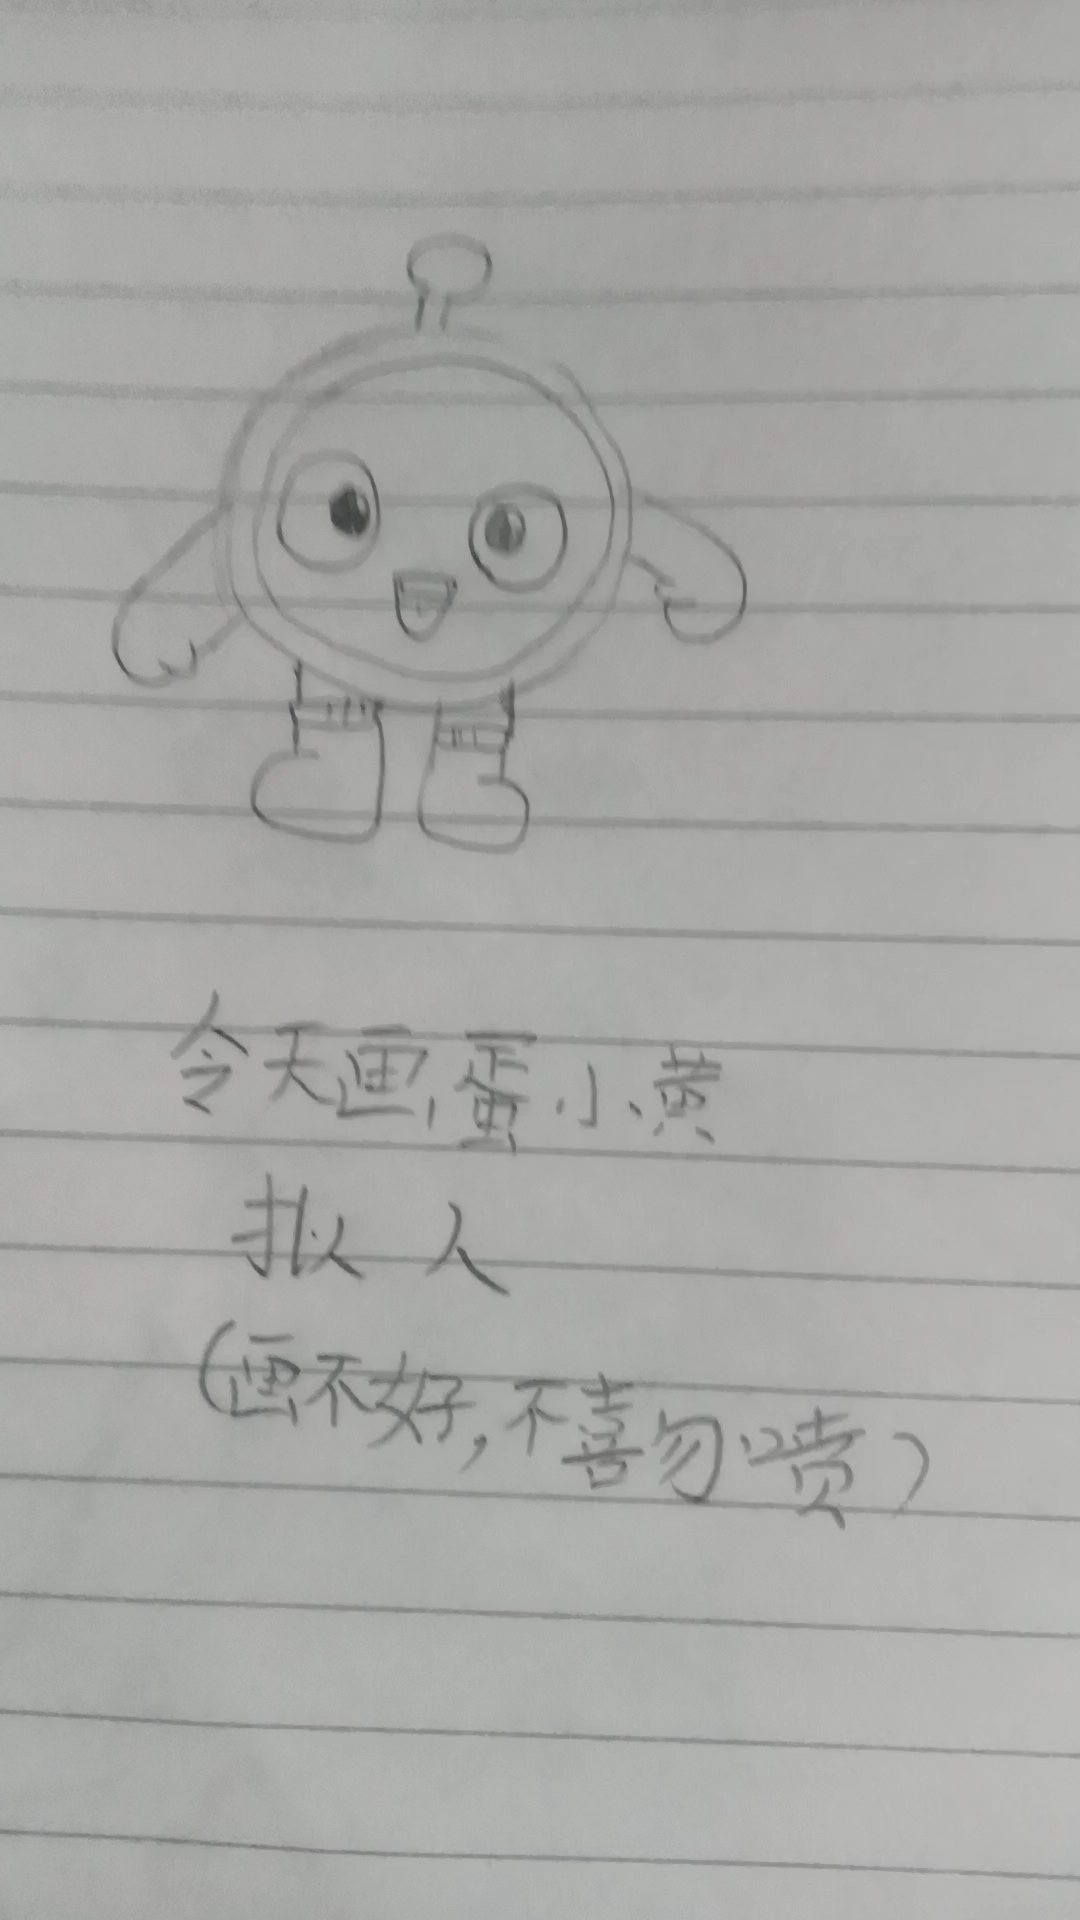 今天画,蛋小黄
拟人
(画不好,不喜勿喷)